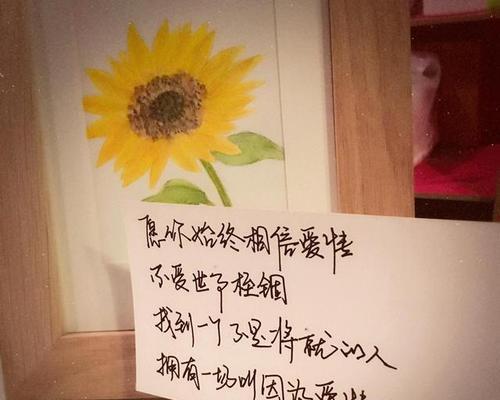 愿你始终相信爱情
不受世事桎锢
找到一个不是将就的人
拥有一场叫因为爱情